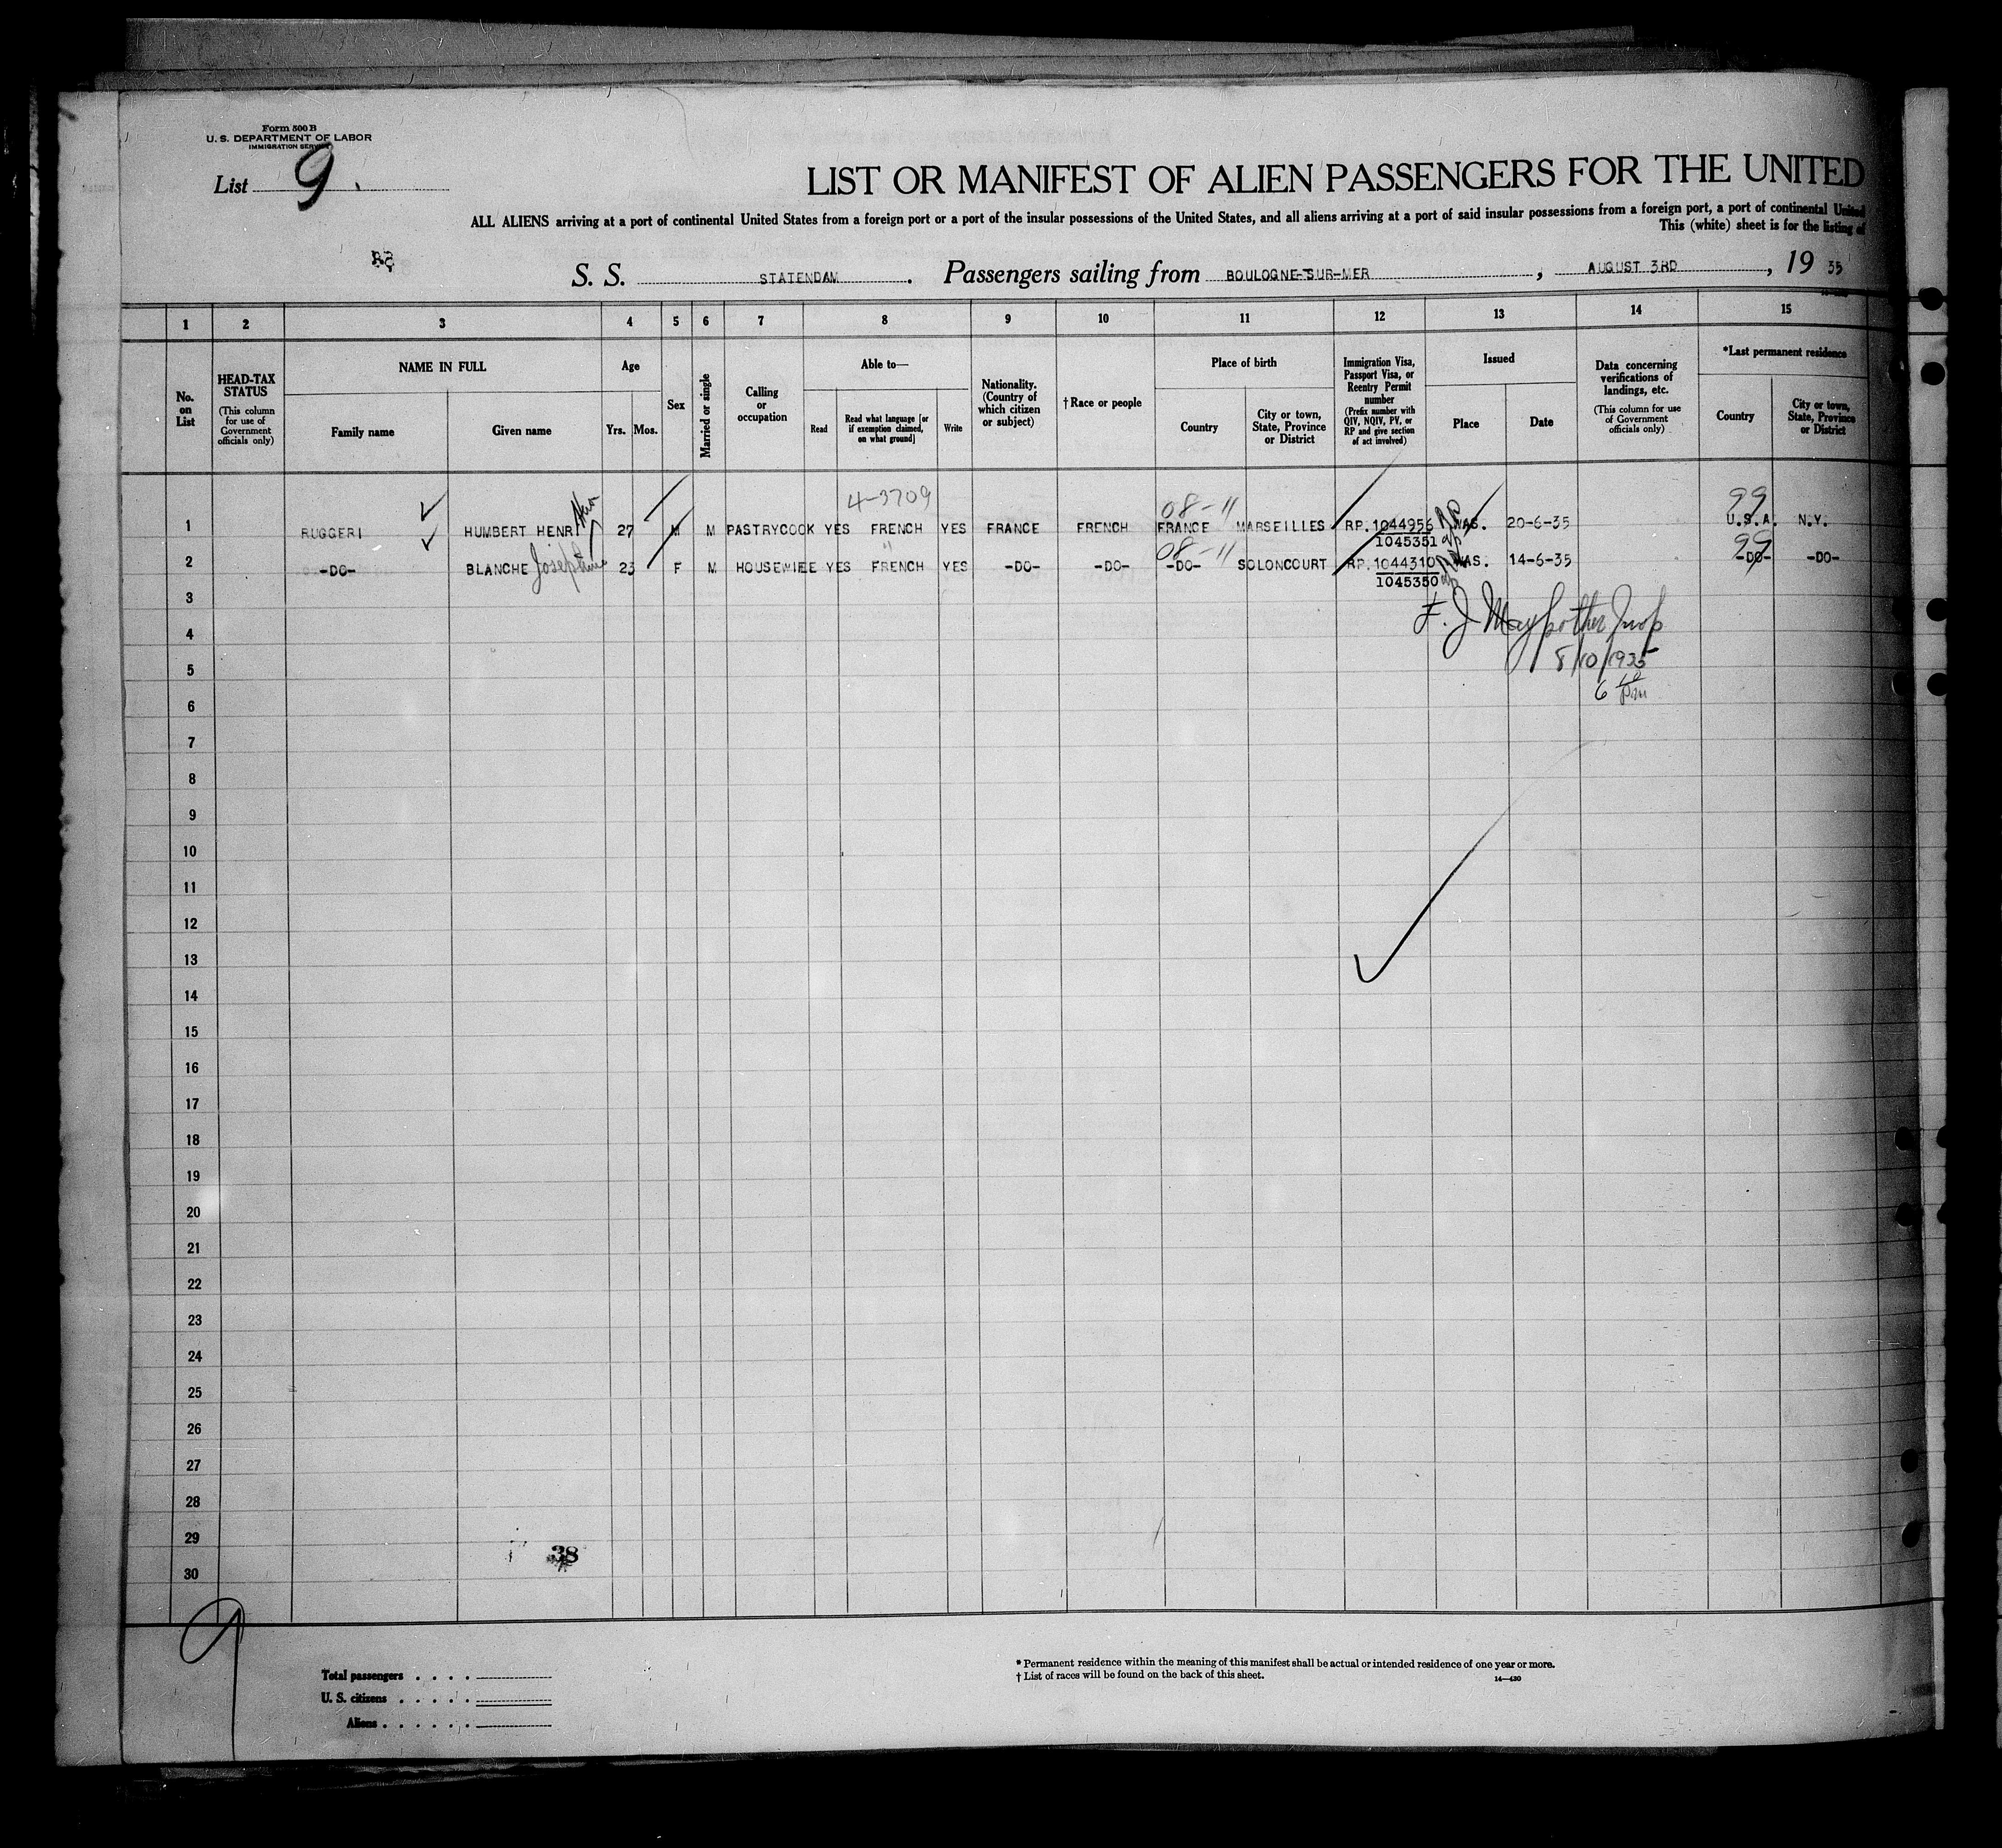 Form 500 B
U. S. DEPARTMENT OF LABOR
IMMIGRATION SERVICE
List 9.
LIST OR MANIFEST OF ALIEN PASSENGERS FOR THE UNITED
ALL ALIENS arriving at a port of continental United States from a foreign port or a port of the insular possessions of the United States, and all aliens arriving at a port of said insular possessions from a foreign port, a port of continental United
This (white) sheet is for the listing of
S. S. STATENDAM. Passengers sailing from BOULOGNE-SUR-MER, AUGUST 3RD, 19 35
1 2 3 4 5 6 7 8 9 10 11 12 13 14 15
No. on List
HEAD-TAX STATUS (This column for use of Government officials only)
NAME IN FULL
Family name
Given name
Age
Yrs. Mos.
Sex
Married or single
Calling or occupation
Able to—
Read
Read what language [or if exemption claimed, on what ground]
Write
Nationality. (Country of which citizen or subject)
† Race or people
Place of birth
Country
City or town, State, Province or District
Immigration Visa, Passport Visa, or Reentry Permit number (Prefix number with QIV, NQIV, PV, or RP and give section of act involved)
Issued
Place
Date
Data concerning verifications of landings, etc. (This column for use of Government officials only)
*Last permanent residence
Country
City or town, State, Province or District
4-3709 08-11 99
1 RUGGERI HUMBERT HENRI 27 M M PASTRYCOOK YES FRENCH YES FRANCE FRENCH FRANCE MARSEILLES RP.1044956 WAS. 20-6-35 U.S.A. N.Y.
1045351
08-11 99
2 -DO- BLANCHE Josephine 23 F M HOUSEWIFE YES FRENCH YES -DO- -DO- -DO- SOLONCOURT RP.1044310 WAS. 14-6-35 -DO- -DO-
1045350
3
F. J. Maypother Insp
4
8/10/1935
5
6 10 pm
6
7
8
9
10
11
12
13
14
15
16
17
18
19
20
21
22
23
24
25
26
27
28
29
38
30
9
Total passengers
U. S. citizens
Aliens
* Permanent residence within the meaning of this manifest shall be actual or intended residence of one year or more.
† List of races will be found on the back of this sheet.
14—430